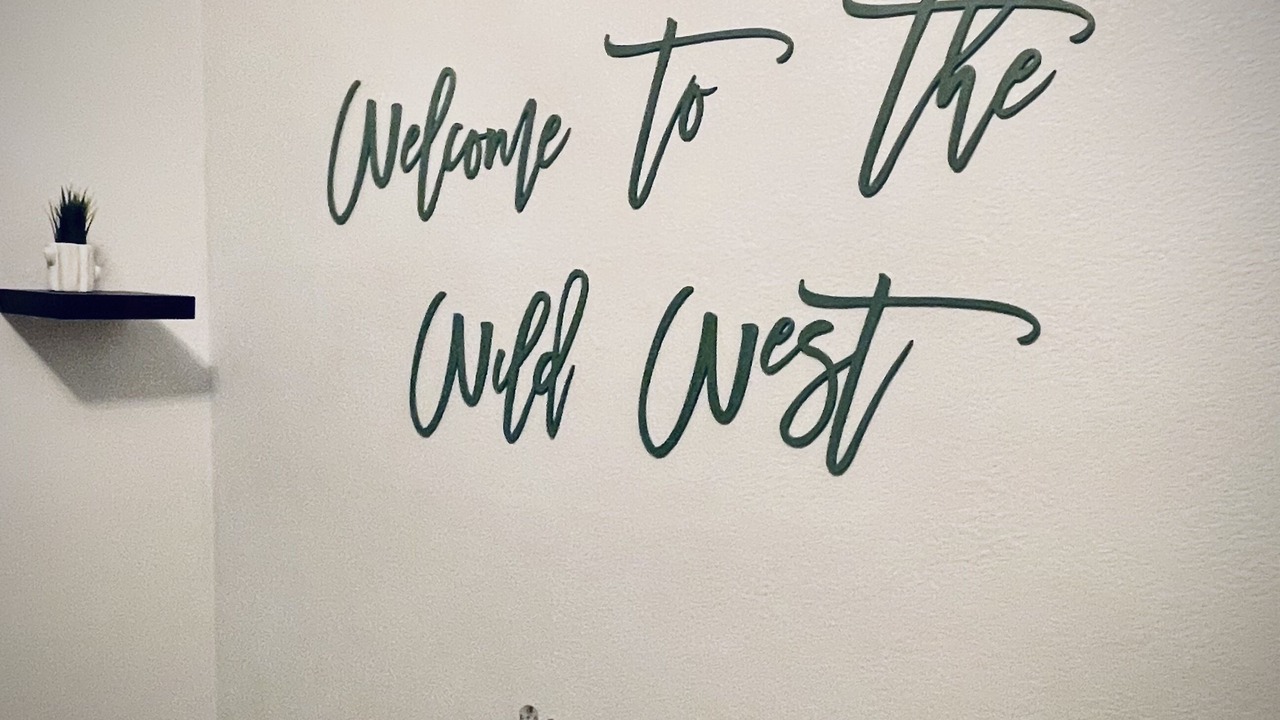 Welcome to The
Wild West